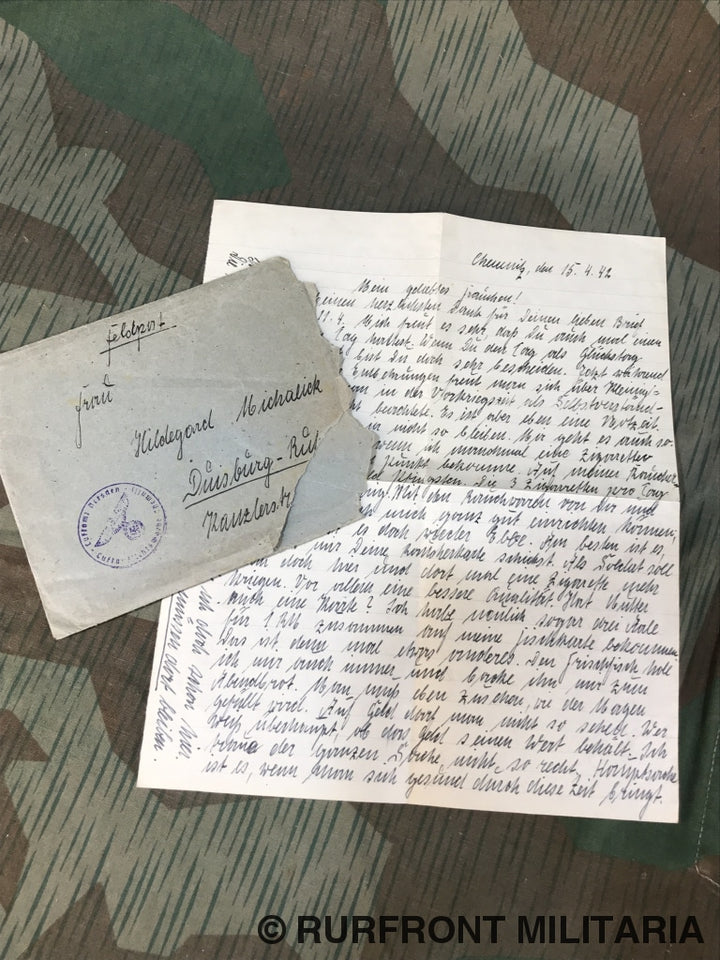 Feldpost
Frau
Hildegard Michalick
Duisburg-Ruh
Kanzlerst
Chemnitz, den 15.4.42
Mein geliebtes Frauchen!
einen herzlichsten Dank für Deinen lieben Brief
11.4. Mich freut es sehr daß Du auch mal einen
Tag hattest. Wenn Du den Tag als Glückstag
bist Du doch sehr bescheiden. Jetzt während
Entbehrungen freut man sich über Kleinig-
in der Vorkriegszeit als Selbstverständ-
buchte. Es ist aber eben eine Notzeit.
nicht so bleiben. Mir geht es auch so
wenn ich manchmal eine Zigarette
Punkt bekomme. Auf meiner Raucher-
Die 3 Zigaretten pro Tag
Mit den Rauchwaren von Dir und
mich ganz gut einrichten können,
es doch wieder Ebbe. Am besten ist es,
mir Deine schickst. Als Soldat soll
doch hier und dort mal eine Zigarette mehr
kriegen. Vor allem eine bessere Qualität. Hat Mutter
auch eine Karte? Ich habe neulich sogar drei Aale
für 1 RM zusammen auf meine Fischkarte bekommen
Das ist denn mal etwas anderes. Den Frischfisch hole
ich mir auch immer und backe ihn mir zum
Abendbrot. Man muß eben zusehen, wo der Magen
gefüllt wird. Auf Geld darf man nicht so sehen. Wer
weiß überhaupt, ob das Geld seinen Wert behält. Ich
der ganzen Sache nicht so recht. Hauptsache
ist es, wenn man sich gesund durch diese Zeit bringt.
ich doch schon hier.
dort bleiben.
© RURFRONT MILITARIA